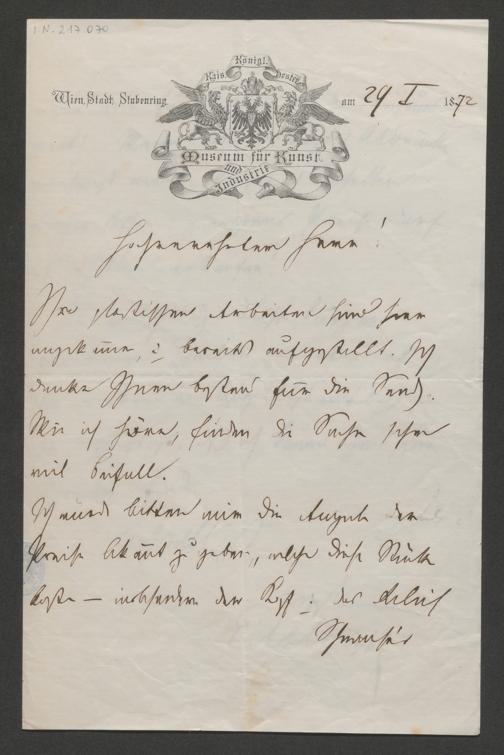 I.N. 217.070
Kais. Königl. Oesterr.
Wien, Stadt, Stubenring,
am 29 I 1872
Museum für Kunst
und
Industrie
Hochverehrter Herr!
Ihre plastischen Arbeiten sind hier
angekommen, u bereits aufgestellt. Ich
danke Ihnen bestens für die Send.
Wie ich höre, finden die Sachen sehr
viel Beifall.
Ich würde bitten mir die Angabe der
Preise bekannt zu geben, welche diese Stücke
kosten — insbesondere der Kopf u das Relief